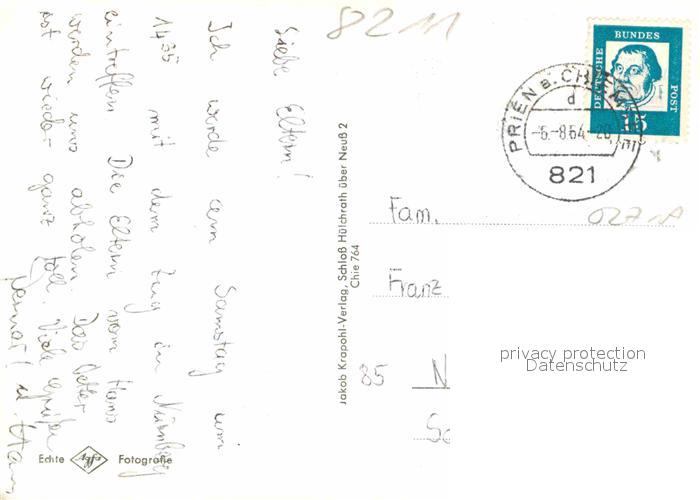 8211
Liebe Eltern!
Ich werde am Samstag um
1435 mit dem Zug in Nürnberg
eintreffen. Die Eltern von Hans
werden uns abholen. Das Wetter
ist wieder ganz toll. Viele Grüße
u. Hans
DEUTSCHE BUNDES POST
15
PRIEN a. CHIEM
d
-6.-8.64-20
821
027 A
Fam.
Franz
85 N
Sc
Jakob Krapohl-Verlag, Schloß Hülchrath über Neuß 2
Chie 764
privacy protection
Datenschutz
Echte Agfa Fotografie